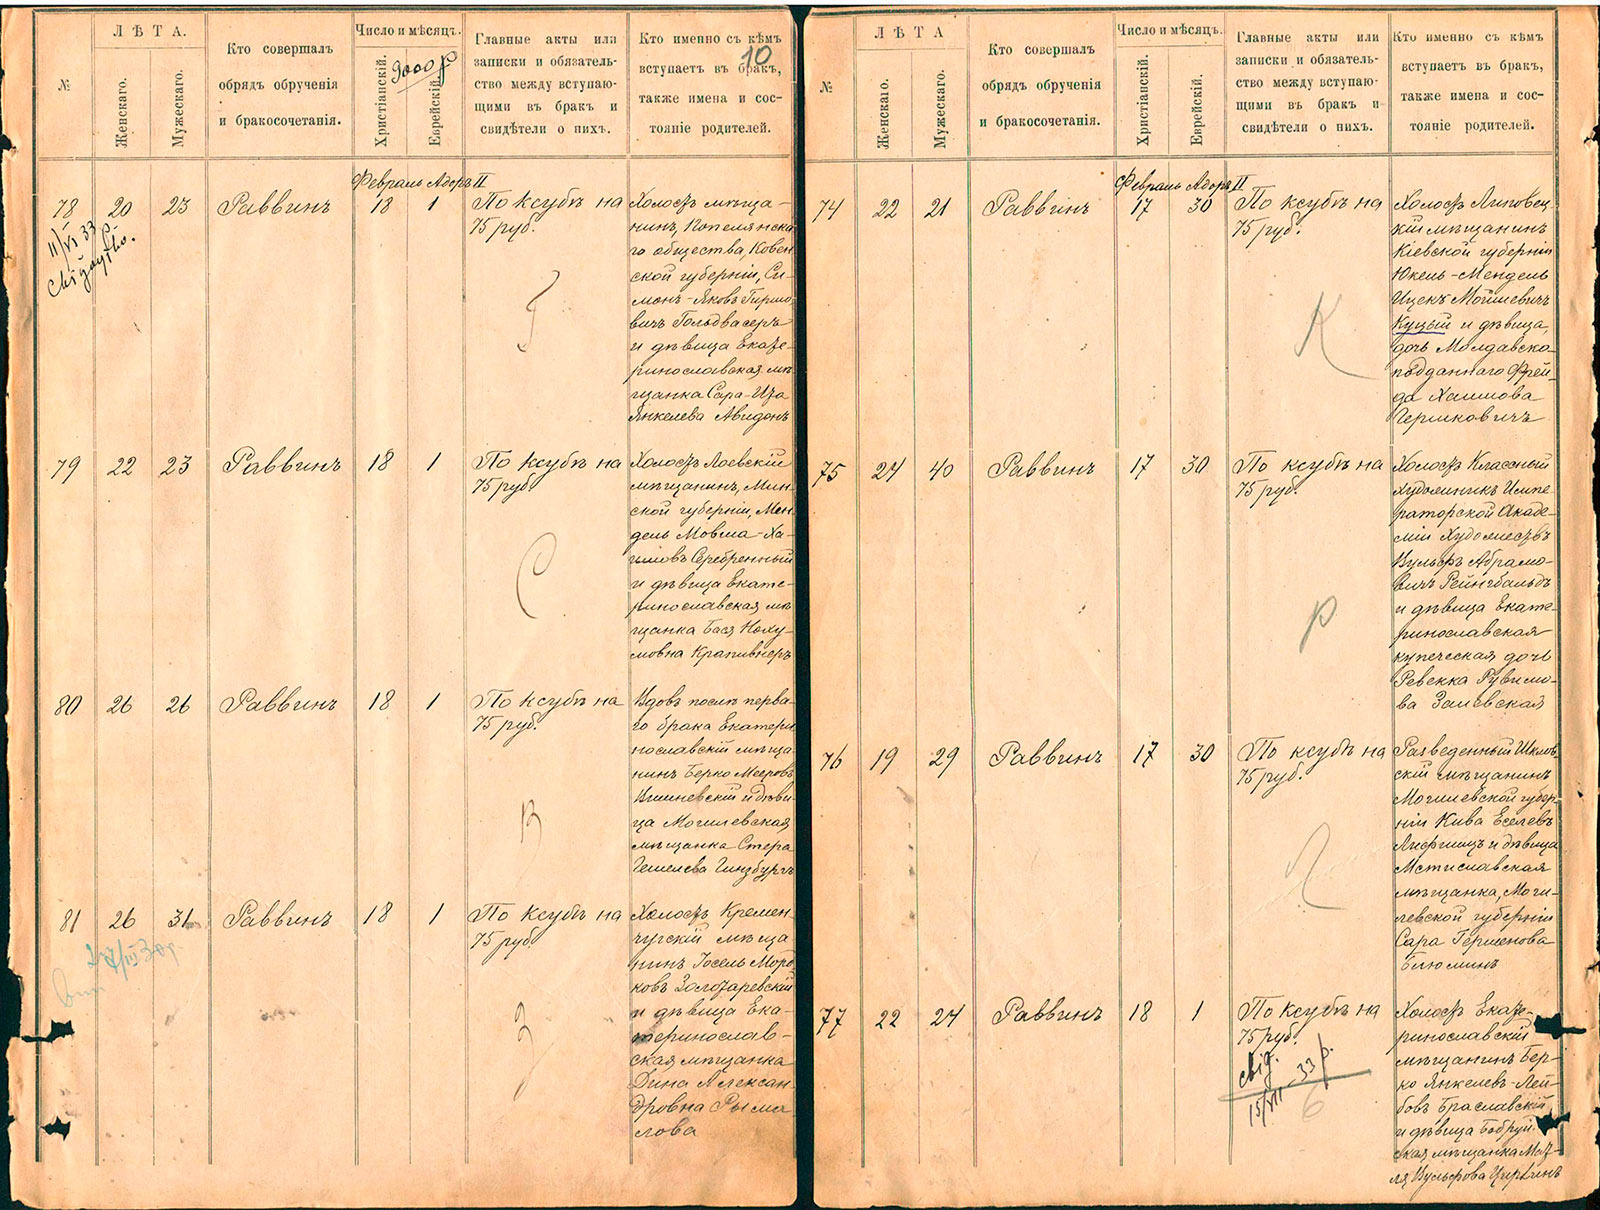 №
ЛѢТА.
Женскаго.
Мужескаго.
Кто совершалъ
обрядъ обрученія
и бракосочетанія.
Число и мѣсяцъ.
Христіанскій.
Еврейскій.
9000 р
Главные акты или
записки и обязатель-
ство между вступаю-
щими въ бракъ и
свидѣтели о нихъ.
Кто именно съ кѣмъ
вступаетъ въ бракъ,
также имена и сос-
тояніе родителей.
10
Февраль Адоръ II
78 20 23 Раввинъ 18 1
11/VI 33 р.
По ксубѣ на
75 руб.
Г
Холостъ мѣща-
нинъ, Попелянска-
го общества, Ковен-
ской губерніи, Си-
монъ-Яковъ Гиршо-
вичъ Гольдвасеръ
и дѣвица Екате-
ринославская мѣ-
щанка Сара-Иза
Янкелева Авидонъ
79 22 23 Раввинъ 18 1
По ксубѣ на
75 руб.
С
Холостъ Лоевскій
мѣщанинъ, Мин-
ской губерніи, Мен-
дель Мовша-Ха-
имовъ Серебренный
и дѣвица Екате-
ринославская мѣ-
щанка БасяНоху-
мовна Крапивнеръ
80 26 26 Раввинъ 18 1
По ксубѣ на
75 руб.
В
Вдовъ послѣ перва-
го брака Екатери-
нославскій мѣща-
нинъ Берко Мееровъ
Вишневскій и дѣви-
ца Могилевская
мѣщанка Стера
Гешелева Гинзбургъ
81 26 31 Раввинъ 18 1
По ксубѣ на
75 руб
З
Холостъ Кремен-
чугскій мѣща
нинъ Іосель Морд
ковъ Золотаревскій
и дѣвица Ека-
теринослав-
ская мѣщанка
Дина Алексан-
дровна Рыма
лова
№
ЛѢТА
Женскаго.
Мужескаго.
Кто совершалъ
обрядъ обрученія
и бракосочетанія.
Число и мѣсяцъ.
Христіанскій.
Еврейскій.
Главные акты или
записки и обязатель-
ство между вступаю-
щими въ бракъ и
свидѣтели о нихъ.
Кто именно съ кѣмъ
вступаетъ въ бракъ,
также имена и сос-
тояніе родителей.
Февраль Адоръ II
74 22 21 Раввинъ 17 30
По ксубѣ на
75 руб.
К
Холостъ Липовец-
кій мѣщанинъ
Кіевской губерніи
Юкель-Мендель
Ицекъ Мойшевичъ
Куцый и дѣвица,
дочь Молдавско-
подданнаго Фрей-
да Хаимова
Гершковичъ
75 24 40 Раввинъ 17 30
По ксубѣ на
75 руб.
Р
Холостъ Классный
Художникъ Импе-
раторской Акаде-
міи Художествъ
Вульфъ Абрамо-
вичъ Рейнгбальдъ
и дѣвица Екате-
ринославская
купеческая дочь
Ревекка Рувимо-
ва Заиевская
76 19 29 Раввинъ 17 30
По ксубѣ на
75 руб.
Л
Разведенный Шклов-
скій мѣщанинъ
Могилевской губер-
ніи Кива Еселевъ
Лифшицъ и дѣвица
Мстиславская
мѣщанка, Моги-
левской губерніи
Сара Гершенова
Блюминъ
77 22 24 Раввинъ 18 1
По ксубѣ на
75 руб.
свід.
15/VII 33 р.
Б
Холостъ Екате-
ринославскій
мѣщанинъ Бер-
ко Янкелевъ-Лей-
бовъ Браславскій
и дѣвица Бобруй-
ская мѣщанка
Вульфова Цирлинъ